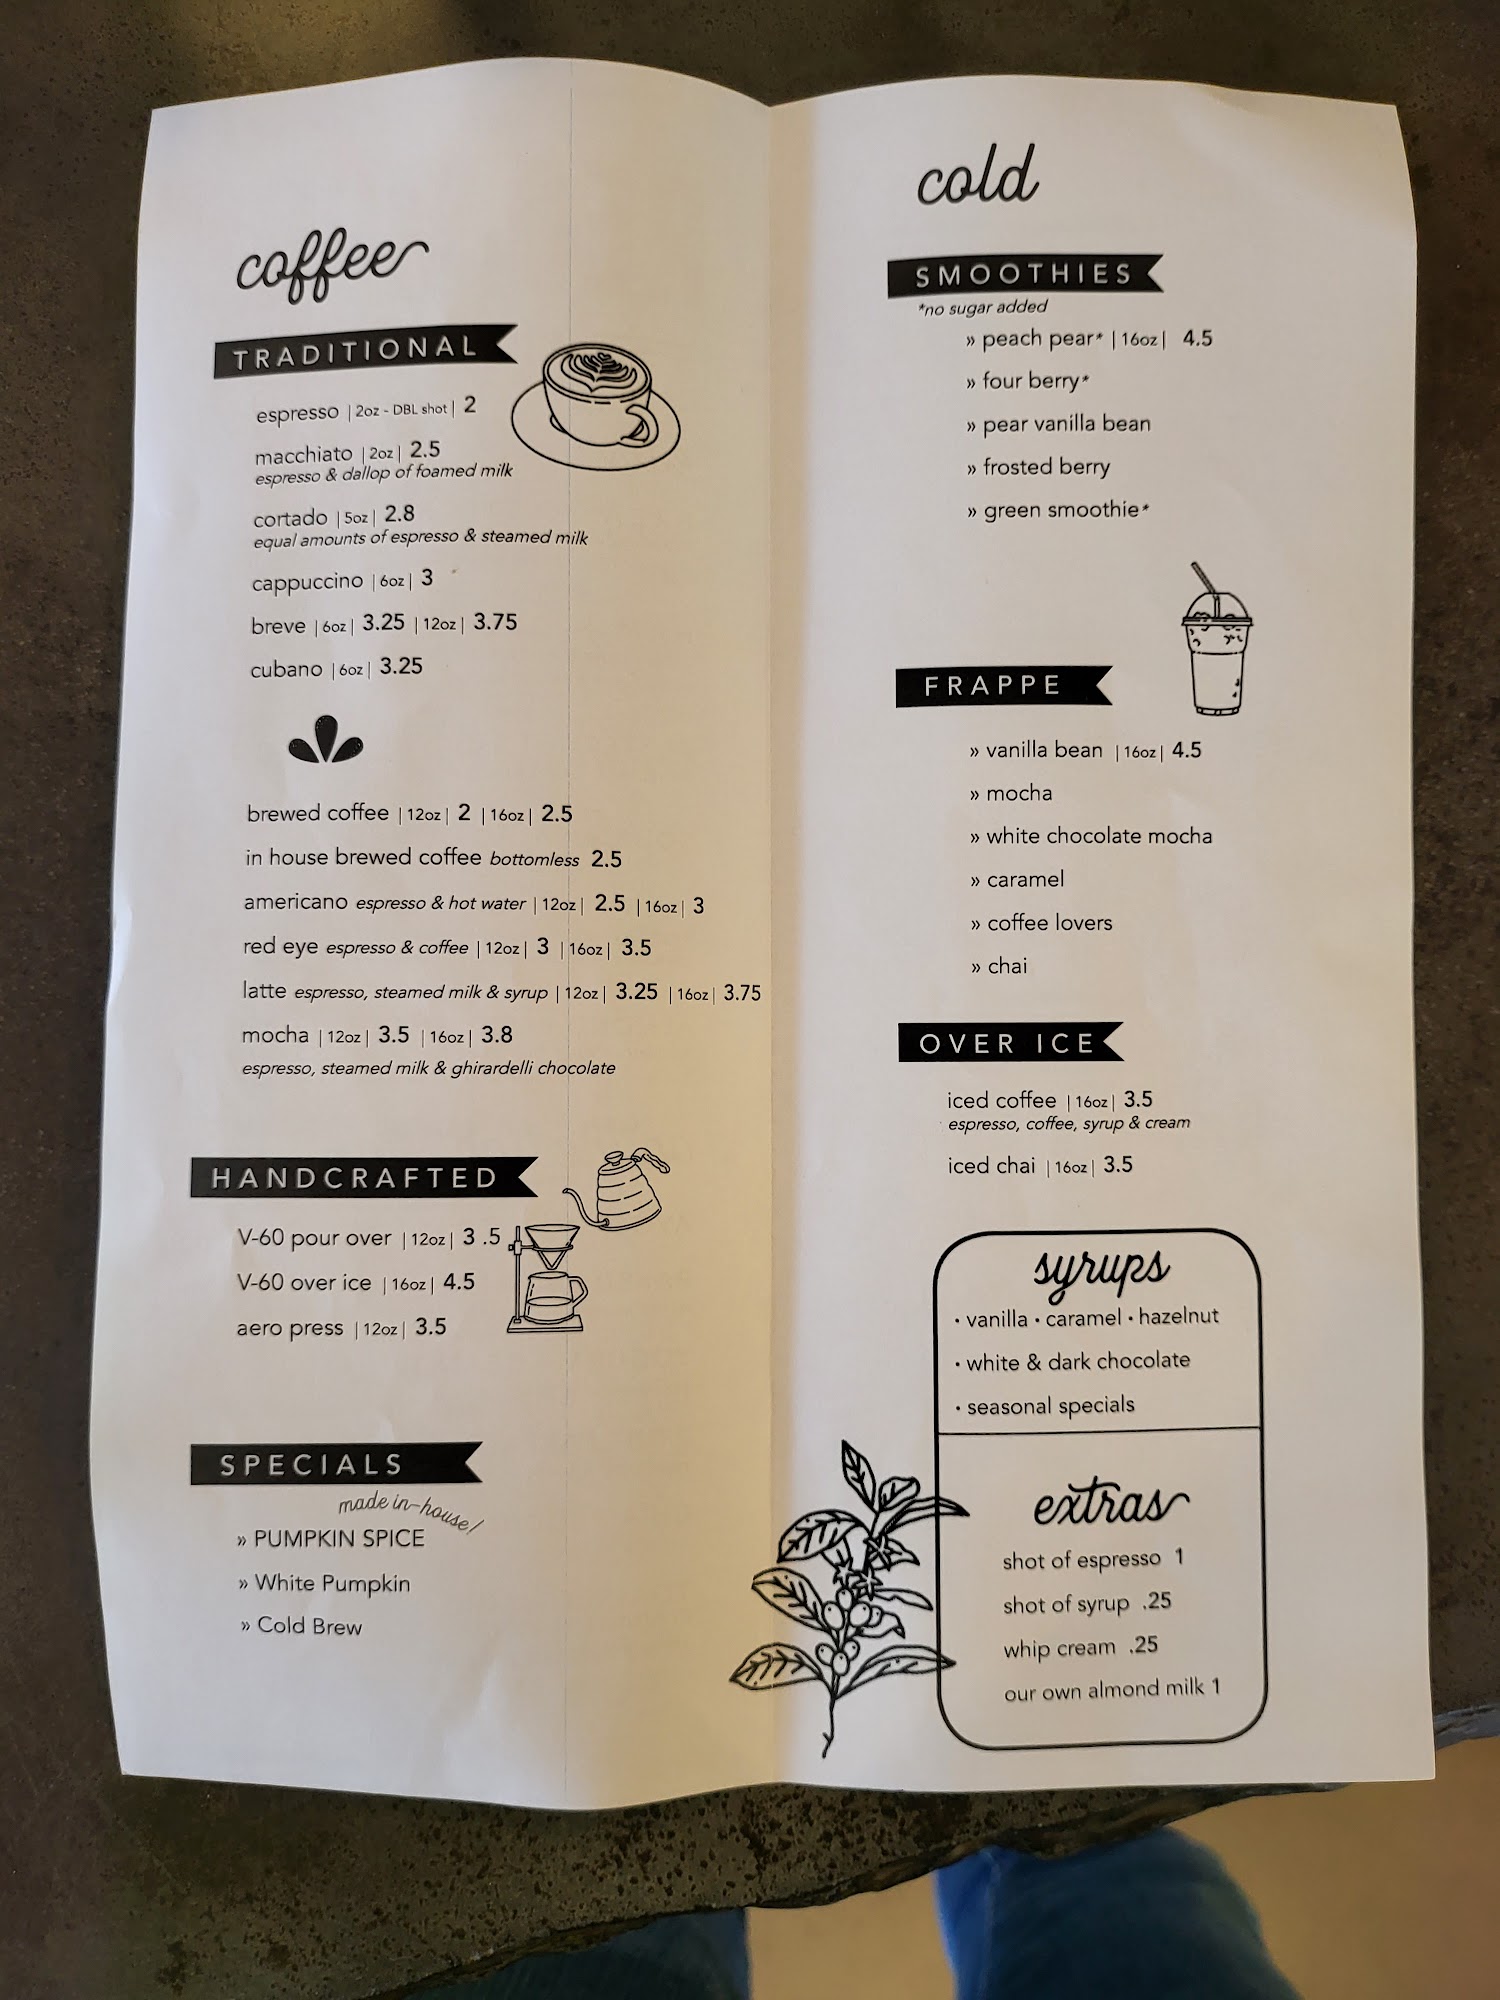 coffee
TRADITIONAL
espresso |2oz - DBL shot| 2
macchiato |2oz| 2.5
espresso & dallop of foamed milk
cortado |5oz| 2.8
equal amounts of espresso & steamed milk
cappuccino |6oz| 3
breve |6oz| 3.25 |12oz| 3.75
cubano |6oz| 3.25
brewed coffee |12oz| 2 |16oz| 2.5
in house brewed coffee bottomless 2.5
americano espresso & hot water |12oz| 2.5 |16oz| 3
red eye espresso & coffee |12oz| 3 |16oz| 3.5
latte espresso, steamed milk & syrup |12oz| 3.25 |16oz| 3.75
mocha |12oz| 3.5 |16oz| 3.8
espresso, steamed milk & ghirardelli chocolate
HANDCRAFTED
V-60 pour over |12oz| 3 .5
V-60 over ice |16oz| 4.5
aero press |12oz| 3.5
SPECIALS
made in-house!
» PUMPKIN SPICE
» White Pumpkin
» Cold Brew
cold
SMOOTHIES
*no sugar added
» peach pear* |16oz| 4.5
» four berry*
» pear vanilla bean
» frosted berry
» green smoothie*
FRAPPE
» vanilla bean |16oz| 4.5
» mocha
» white chocolate mocha
» caramel
» coffee lovers
» chai
OVER ICE
iced coffee |16oz| 3.5
espresso, coffee, syrup & cream
iced chai |16oz| 3.5
syrups
• vanilla • caramel • hazelnut
• white & dark chocolate
• seasonal specials
extras
shot of espresso 1
shot of syrup .25
whip cream .25
our own almond milk 1